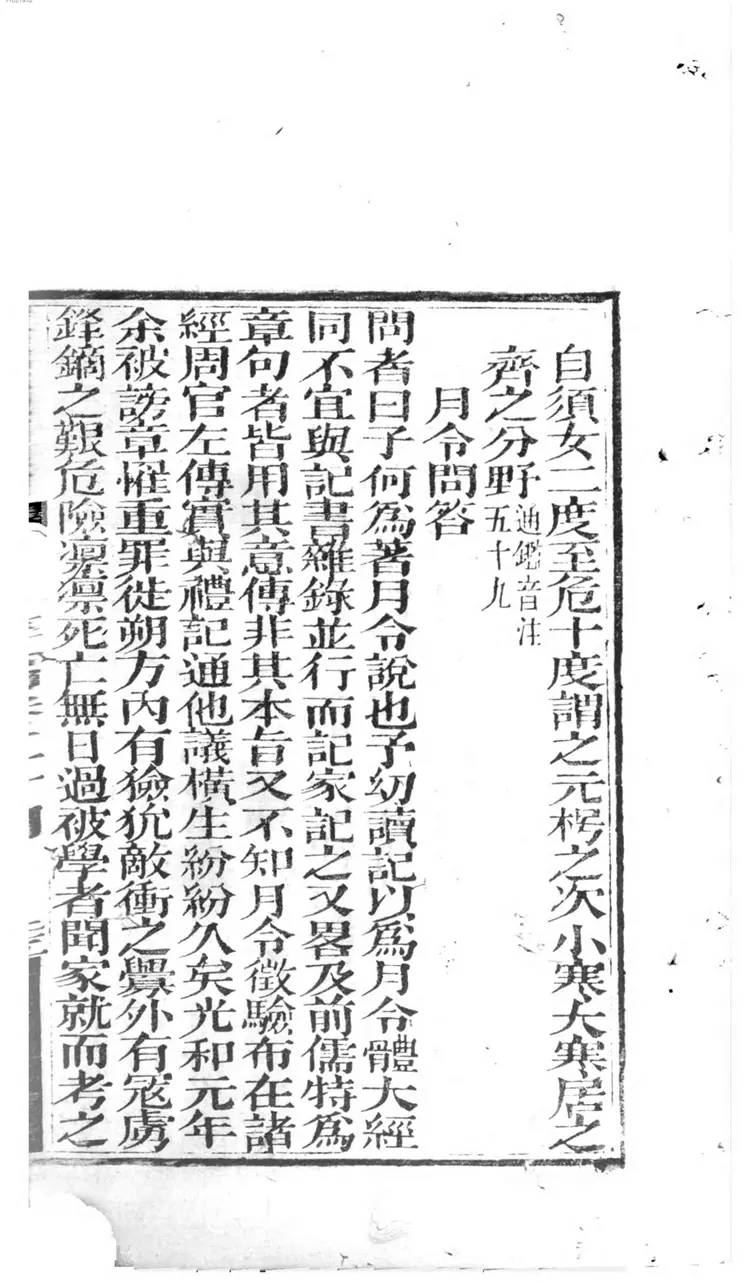 自須女二度至危十度謂之元枵之次小寒大寒居之
齊之分野通鑑音注五十九
月令問答
問者曰子何爲著月令說也予幼讀記以爲月令體大經
同不宜與記書雜錄並行而記家記之又畧及前儒特爲
章句者皆用其意傳非其本旨又不知月令徵驗布在諸
經周官左傳實與禮記通他議橫生紛紛久矣光和元年
余被謗章懼重罪徙朔方內有獫狁敵衝之釁外有寇虜
鋒鏑之艱危險凛凛死亡無日過被學者聞家就而考之